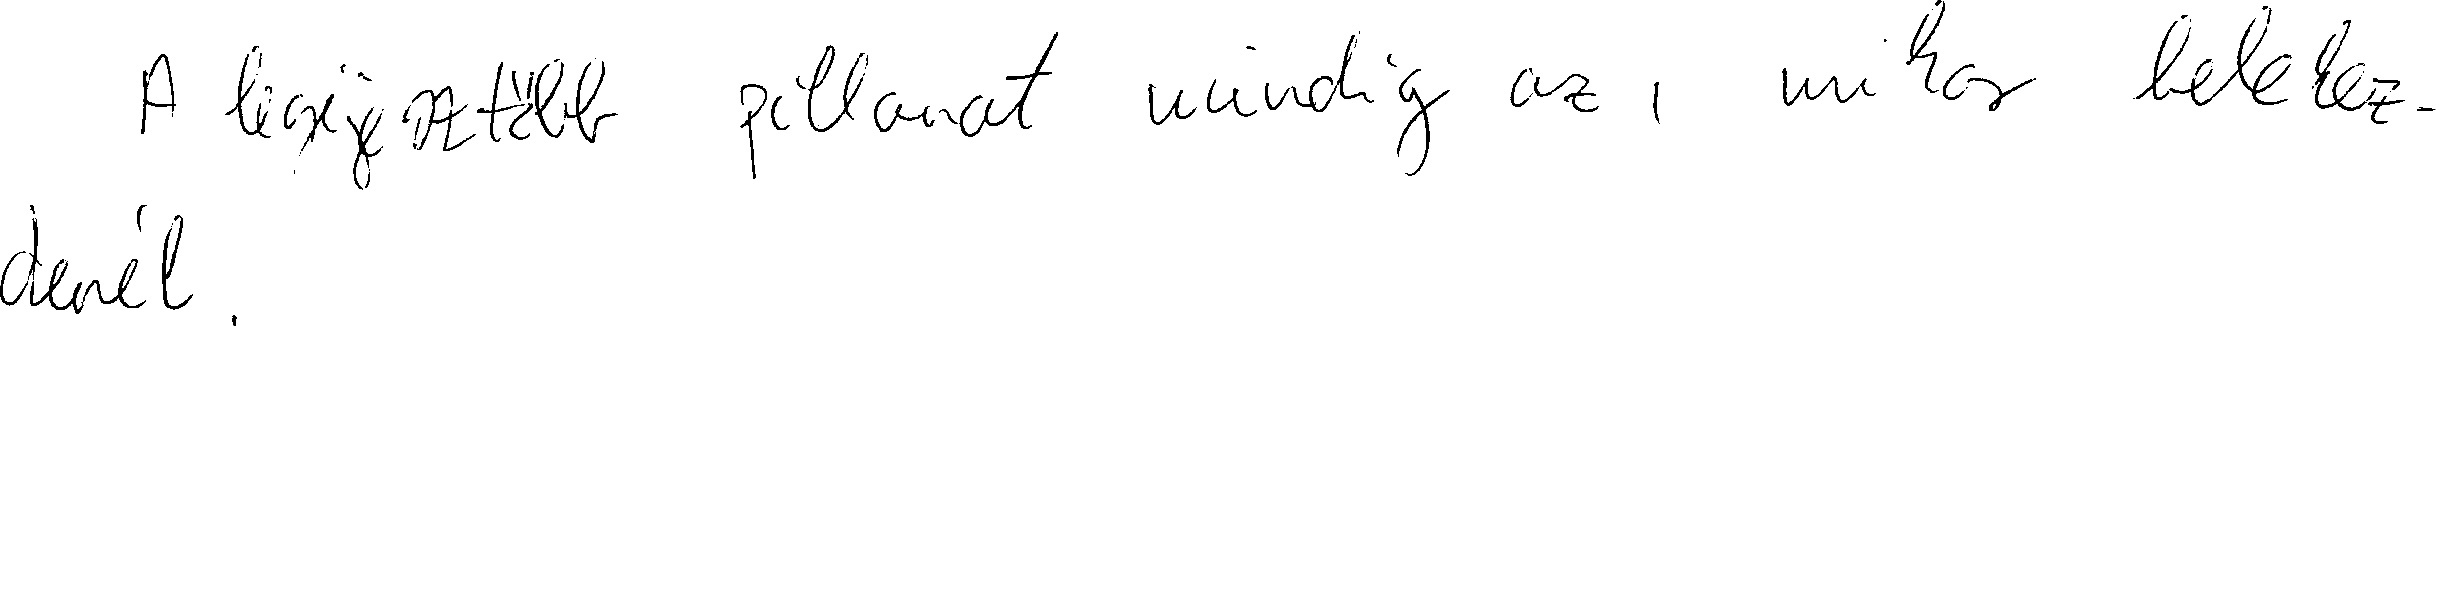 A legijesztőbb pillanat mindig az, mikor belekez-
denél.